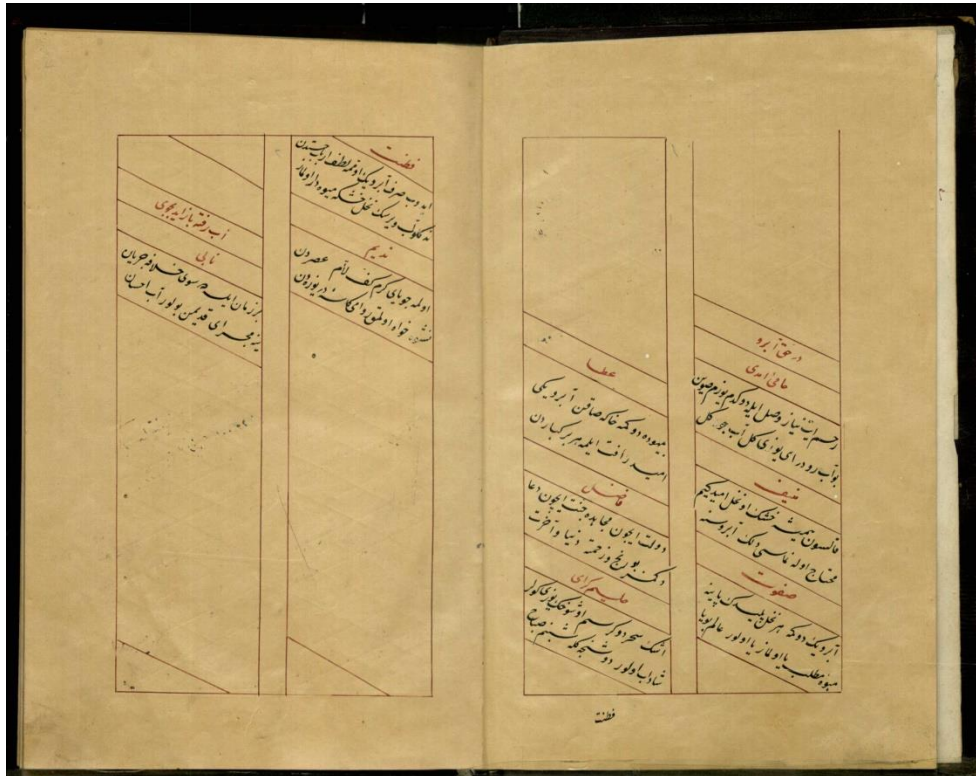 در حق آبرو
مافی آمدی
رحم ایت نیاز وصل ایله دوکدم یوزم صوین
بو آب رو در ای یوزی کل آب جو دکل
منیف
قالسون همیشه خشک او نخل امید کیم
محتاج اوله نماسی دلک آبروسنه
صفوت
آبرویك دوکه هر نخل بلندك پاینه
میوهٔ مطلب یا اولماز یا اولور عالم بویا
عطا
بیهوده دوکمه خاکه صاقن آبرویکی
امید رأفت ایلمه هر بر کباردن
فاضل
دولت ایچون مجاهده جنت ایچون دعا
دکمز بو رنج و زحمته دنیا و آخرت
حلیم کرای
اشك سحر دوکرسم او شوخك یوزی کولر
شاداب اولور دوشنجه کله شبنم صباح
فطنت
فطنت
ایدوب صرف آبرویك اومه لطف ارباب خستدن
نه کلو آب ویرسك نخل خشکه میوه دار اولماز
ندیم
اولمه جویای کرم کف لئام عصردن
خواه اولمق روامی کاسهٔ دریوزه دن
آب رفته باز آید بجوی
نابی
بر زمان ایلسه ده سوی خلافه جریان
ینه مجرای قدیمن بولور آب احسان